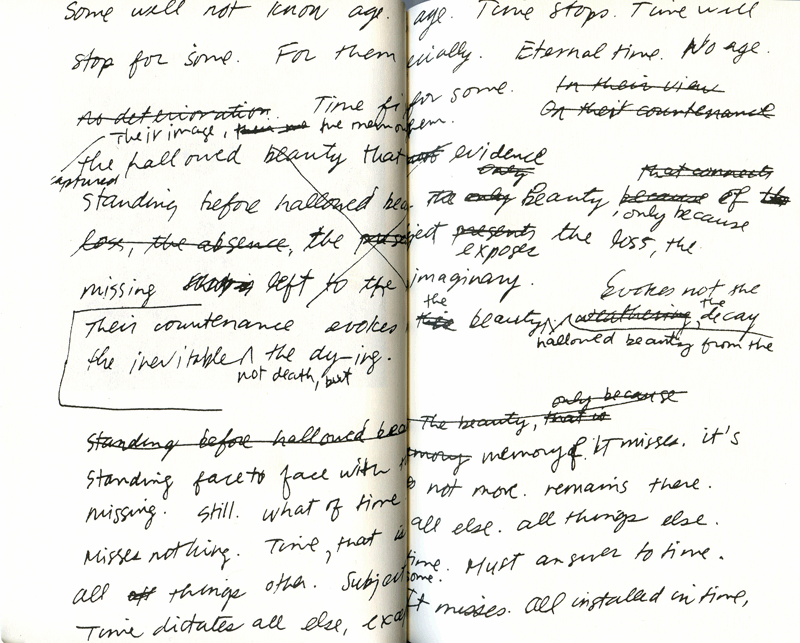 Some will not know age. age. Time stops. Time will
stop for some. For them ecially. Eternal time. No age.
no deterioration. Time fi for some. In their view
On their countenance
Their image, the memo em.
the hallowed beauty that evidence
captured only that connects
standing before hallowed bea the only Beauty because of the
only because
loss, the absence, the ject presents the loss, the
exposes
missing left to the imaginary.
Evokes not the
Their countenance evokes the beauty, weathering, the decay
hallowed beauty from the
the inevitable the dy-ing.
not death, but
only because
standing before hallowed bea The beauty, that is
standing face to face with memory memory of. IT misses. it's
missing. Still. what of time not move. remains there.
Misses nothing. Time, that is all else. all things else.
all things other. Subject time. Must answer to time.
some.
Time dictates all else, exce It misses. All installed in time,